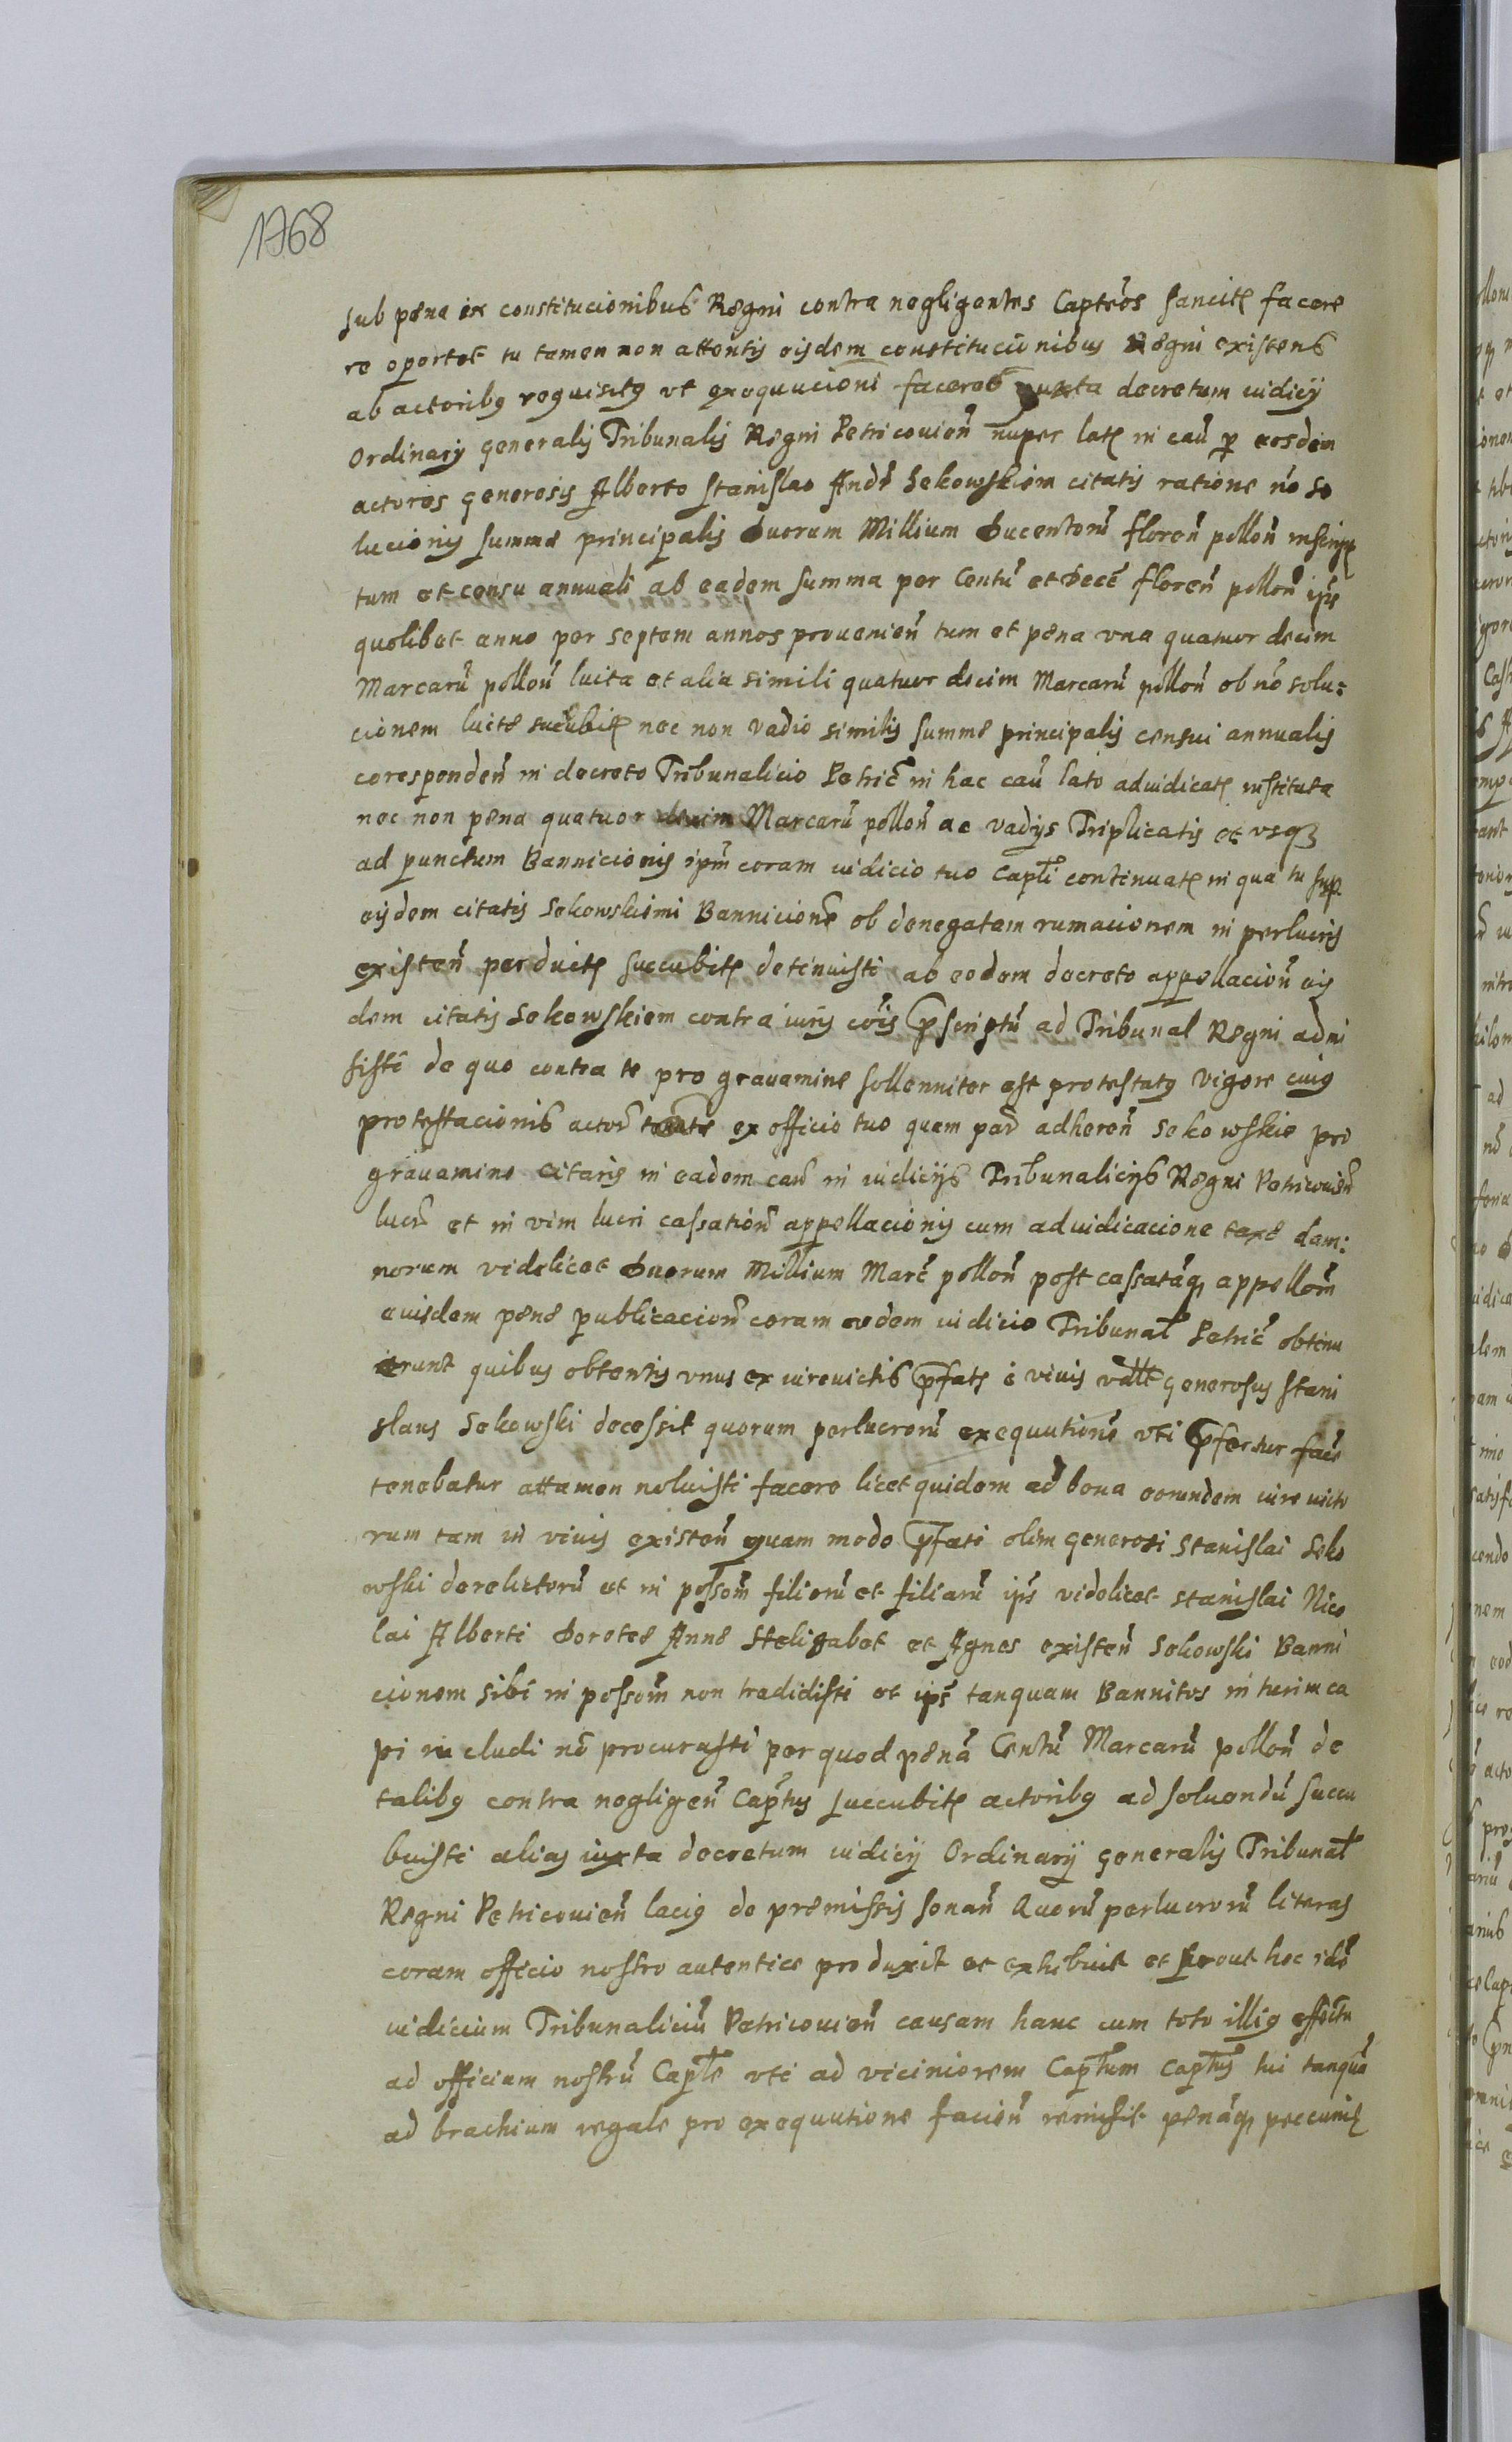 1768
sub pena in constitucionibus Regni contra negligentes Capteos sancitę facere
re oportet tu tamen non attentis eisdem constitucionibus Regni existens
ab actoribꝯ requisitꝯ vt exequucioni faceres iuxta decretum iudicij
Ordinarij generalis Tribunalis Regni Petricouien̄ nuper latę in cau̅ p̲ eosdem
actores generosis Alberto Stanislao Andr̄ Sekowskiem citatis ratione no̅ so
lucionis summe principalis Duorum Millium Ducentoru̅ floren̄ pollon̄
tum et censu annuali ab eadem summa per Centu̅ et Dece̅ floren̄ pollon̄ ip̄s
quolibet anno per septem annos prouenien̄ tum et pena vna quatuor decim
Marcaru̅ pollon̄ luita et alia simili quatuor decim Marcaru̅ pollon̄ ob no̅ solu:
cionem luite succubitę nec non vadio similis summe principalis censui annualis
coresponden̄ in decreto Tribunalicio Petric̄ in hac cau̅ lato adiudicatę instituta
nec non pena quatuor decim Marcaru̅ pollon̄ ac vadijs Triplicatis et vsqꝫ
ad punctum Bannicionis ip̄m coram iudicio tuo Capt̄li continuatę in qua tu sup.
eisdem citatis Sekowskimi Bannicione̅ ob denegatam rumacionem in perlucris
existen̄ perductę succubitę detinuisti ab eodem decreto appellacion̄ eis
dem citatis Sekowskiem contra iuris co̅is p̄scriptu̅ ad Tribunal Regni admi
sisti de quo contra te pro grauamine sollenniter est protestatꝯ Vigore cuiꝯ
protestacionis actor̄ ex officio tuo quam par̄ adheren̄ Sekowskie pro
grauamine citaris in eadem cau̅ in iudicijs Tribunalicijs Regni Petricouien̄
lucr̄ et in vim lucri cassation̄ appellacionis cum adiudicacione taxe dam:
norum videlicet Duorum Millium Marc̄ pollon̄ post cassata̅qꝫ appellom̄
euisdem pene publicacion̄ coram eodem iudicio Tribunal̄ Petric̄ obtinu
erunt quibus obtentis vnus ex iureuictis p̄fatę e viuis vdłt generosus Stani
slaus Sekowski decessit quorum perlucroru̅ exequutione̅ vti p̄fertur face̅
tenebatur attamen noluisti facere licet quidem ad bona eorundem iure victo
rum tam in viuis existen̄ quam modo p̄fati olim generosi Stanislai Seko
wski derelictoru̅ et in possom̄ filioru̅ et filiaru̅ ip̄s videlicet Stanislai Nico
lai Alberti Dorotee Anne Helizabet et Agnes existen̄ Sekowski Banni
cionem sibi in possom̄ non tradidisti et ip̄s tanquam Bannitos in turim ca
pi includi no̅ procurasti per quod pena̅ Centu̅ Marcaru̅ pollon̄ de
talibꝯ contra negligen̄ Cap̄tus succubitę actoribꝯ ad soluendu̅ succu
buisti alias iuxta decretum iudicij Ordinarij generalis Tribunal̄
Regni Petricouien̄ laciꝯ de premissis sonan̄ Quoru̅ perlucroru̅ literas
coram officio nostro autentice produxit et exhibuit et prout hoc ide̅
iudicium Tribunaliciu̅ Petricouien̄ causam hanc cum toto illiꝯ effectu
ad officium nostru̅ Capt̄le vti ad viciniorem Capt̄um Capt̄us tui tanqua̅
ad brachium regale pro exequutione facien̄ remisit pena̅qꝫ peccunię